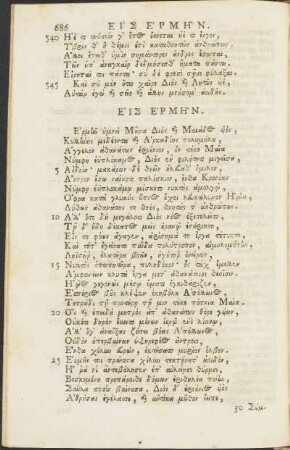 686 ΕἸΣ ἙΡΜΗ͂Ν.
540 Ἠέ τι τηΰσιον γ' ἔπος ἔσσεται ἠέ τι ἔργον,
Ὕβρις θ' ἣ θέμις ἐστὶ καταθνητῶν ἀνθρώπων,
Ἄλλοι ἔπειθ' ὑμῖν σημάντορες ἄνδρες ἔσονται,
Τῶν ὑπ' ἀναγκαίῃ δεδμήσεσθ' ἤματα πάντα.
Εἴρηταί τοι πάντα· σὺ δὲ φρεσὶ σῇσι φύλαξαι.
545 Καὶ σὺ μὲν οὕτω χαῖρε Διὸς καὶ Λητοῦς υἱέ,
Αὐτὰρ ἐγὼ καὶ σεῖο καὶ ἄλλης μνήσομ' ἀοιδῆς.
ΕἸΣ ἙΡΜΗ͂Ν.
Ἑρμῆν ὕμνει Μοῦσα Διὸς καὶ Μαιάδος υἱόν,
Κυλλήνης μεδέοντα καὶ Ἀρκαδίης πολυμήλου,
Ἄγγελον ἀθανάτων ἐριούνιον, ὃν τέκε Μαῖα
Νύμφη ἐϋπλόκαμος, Διὸς ἐν φιλότητι μιγεῖσα,
5 Αἰδοίη· μακάρων δὲ θεῶν ἠλεύαθ' ὅμιλον,
Ἄντρον ἔσω ναίουσα παλίσκιον, ἔνθα Κρονίων
Νύμφῃ ἐϋπλοκάμῳ μισγέσκετο νυκτὸς ἀμολγῷ,
Ὄφρα κατὰ γλυκὺς ὕπνος ἔχοι λευκώλενον Ἥρην,
Λήθων ἀθανάτους τε θεοὺς θνητούς τ' ἀνθρώπους.
10 Ἀλλ' ὅτε δὴ μεγάλοιο Διὸς νόος ἐξετελεῖτο,
Τῇ δ' ἤδη δέκατος μεὶς οὐρανῷ ἐστήρικτο,
Εἴς τε φόως ἄγαγεν, ἀρίσημά τε ἔργα τέτυκτο,
Καὶ τότ' ἐγείνατο παῖδα πολύτροπον, αἱμυλομήτην,
Ληϊστῆρ', ἐλατῆρα βοῶν, ἡγήτορ' ὀνείρων,
15 Νυκτὸς ὀπωπητῆρα, πυληδόκον· ὃς τάχ' ἔμελλεν
Ἀμφανέειν κλυτὰ ἔργα μετ' ἀθανάτοισι θεοῖσιν.
Ἠῷος γεγονὼς μέσῳ ἤματι ἐγκιθάριζεν,
Ἑσπέριος βοῦς κλέψεν ἑκηβόλου Ἀπόλλωνος
Τετράδι τῇ προτέρῃ τῇ μιν τέκε πότνια Μαῖα.
20 Ὃς καὶ ἐπειδὴ μητρὸς ἀπ' ἀθανάτων θόρε γυίων,
Οὐκέτι δηρὸν ἔκειτο μένων ἱερῷ ἐνὶ λίκνῳ,
Ἀλλ' ὅγ' ἀναΐξας ζήτει βόας Ἀπόλλωνος,
Οὐδὸν ὑπερβαίνων ὑψηρεφέος ἄντροιο,
Ἔνθα χέλυν εὑρών, ἐκτήσατο μυρίον ὄλβον.
25 Ἑρμῆς τοι πρώτιστα χέλυν τεκτήνατ' ἀοιδόν,
Ἥ ῥά οἱ ἀντεβόλησεν ἐπ' αὐλείῃσι θύρῃσι,
Βοσκομένη προπάροιθε δόμων ἐριθηλέα ποίην,
Σαῦλα ποσὶν βαίνουσα. Διὸς δ' ἐριούνιος υἱὸς
Ἀθρήσας ἐγέλασσε, καὶ αὐτίκα μῦθον ἔειπε,
30 Σύμ-